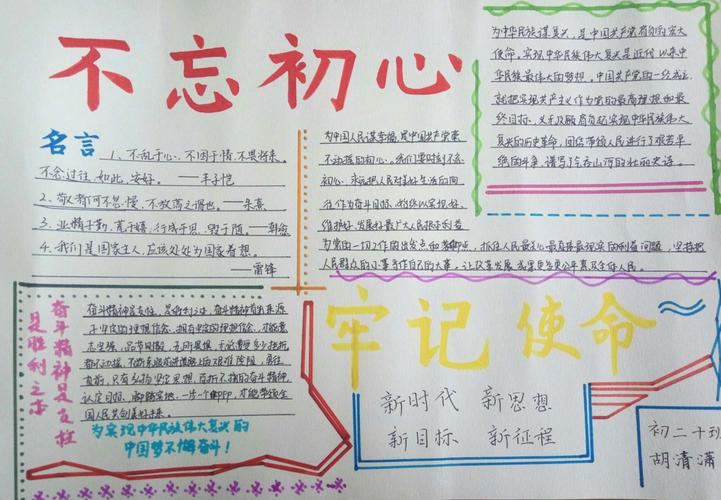 不忘初心
名言
1、不乱于心,不困于情,不畏将来,
不念过往,如此,安好。——丰子恺
2、苟有者何不怠慢,不放荡之谓也。——朱熹
3、业精于勤,荒于嬉,行成于思,毁于随。——韩愈
4、我们是国家主人,应该处处为国家着想。
——雷锋
为中国人民谋幸福,是中国共产党
不动摇的初心。我们要时刻不忘
初心,永远把人民对美好生活的向
往作为奋斗目标,始终以实现好、
维护好、发展好最广大人民根本利益
为党的一切工作的出发点和落脚点,抓住人民最关心最直接最现实的利益问题,坚持把
人民群众的小事当作自己的大事,让改革发展成果更多更公平惠及全体人民。
为中华民族谋复兴,是中国共产党肩负的重大
使命。实现中华民族伟大复兴是近代以来中
华民族最伟大的梦想。中国共产党的一经成立,
就把实现共产主义作为党的最高理想和最
终目标,义无反顾肩负起实现中华民族伟大
复兴的历史使命,团结带领人民进行了艰苦卓
绝的斗争,谱写了气吞山河的壮丽史诗。
奋斗精神是支柱
是胜利之本
奋斗精神是支柱,是胜利之本。奋斗精神首先来源
于坚定的理想信念。拥有坚定的理想信念,才能意
志坚强,
国人民共创美好未来。
为实现中华民族伟大复兴的
中国梦不懈奋斗!
牢记使命
新时代 新思想
新目标 新征程
初二十班
胡清潇